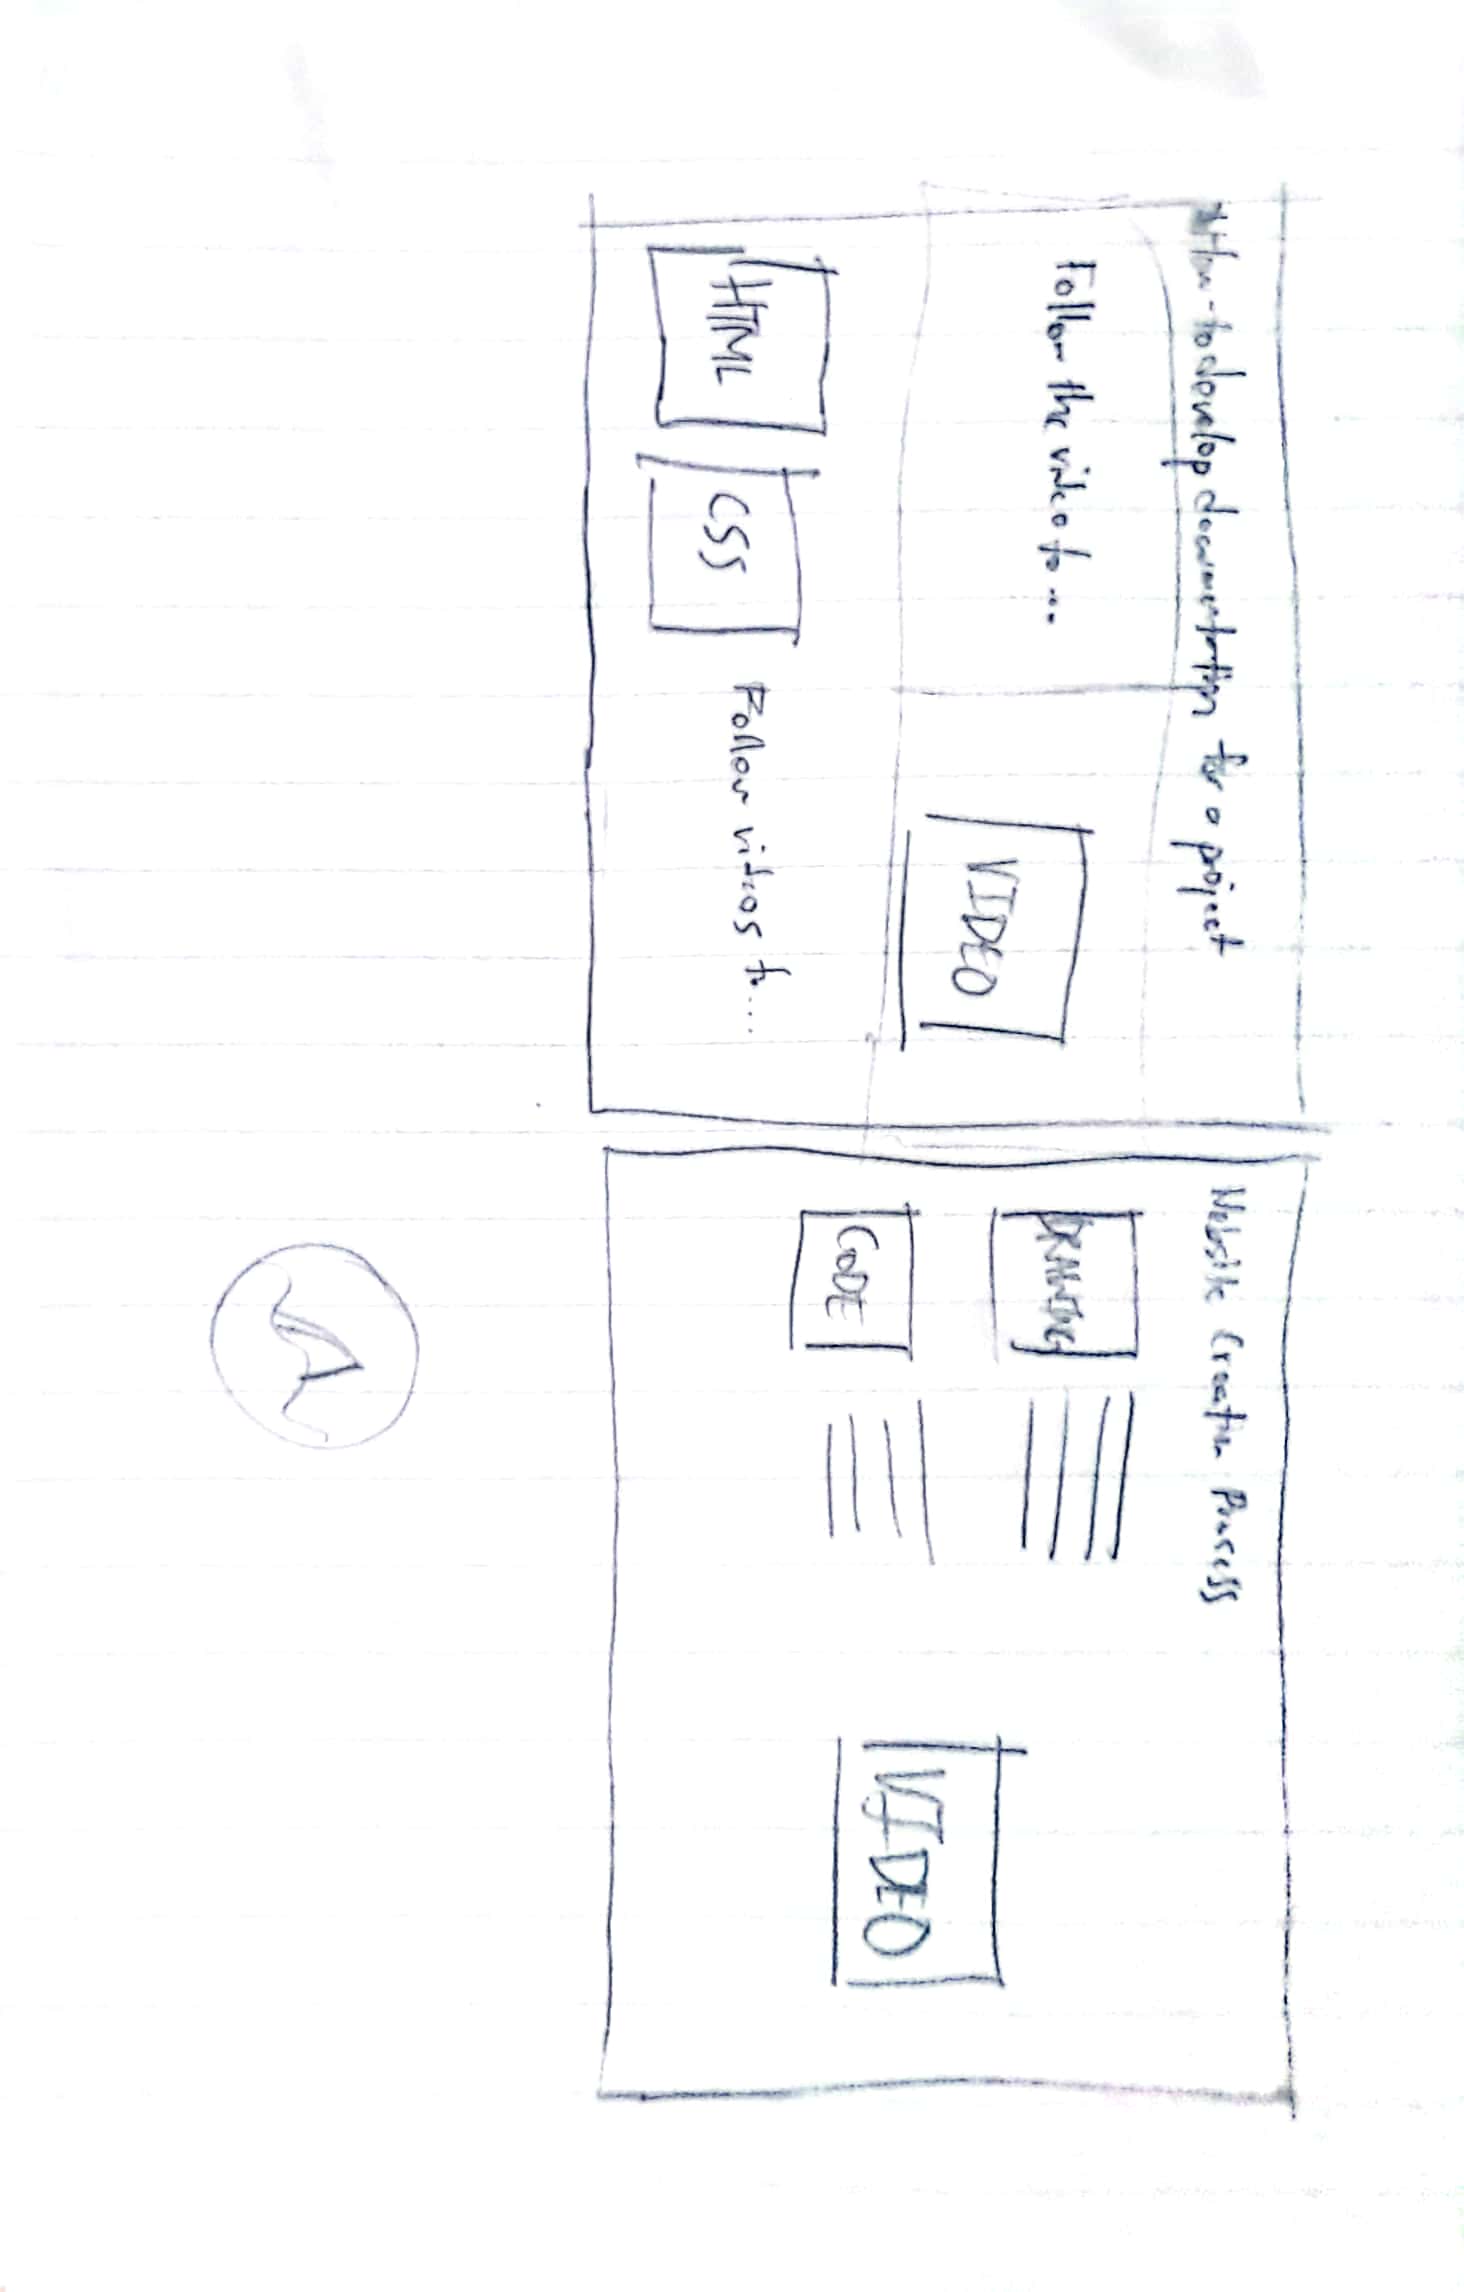 How-to develop documentation for a project
Follow the video to...
VIDEO
HTML
CSS
Follow videos to...
Website Creation Process
DRAWING
CODE
VIDEO